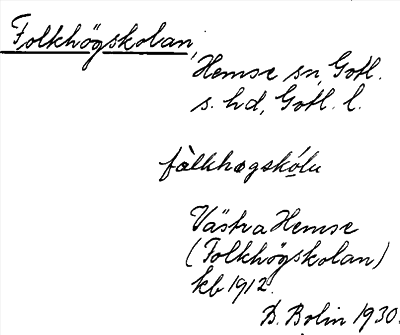 Folkhögskolan,
Hemse sn, Gotl.
s. hd, Gotl. l.
fàlkhøgskólu
Västra Hemse
(Folkhögskolan)
kb 1912.
D. Bolin 1930.